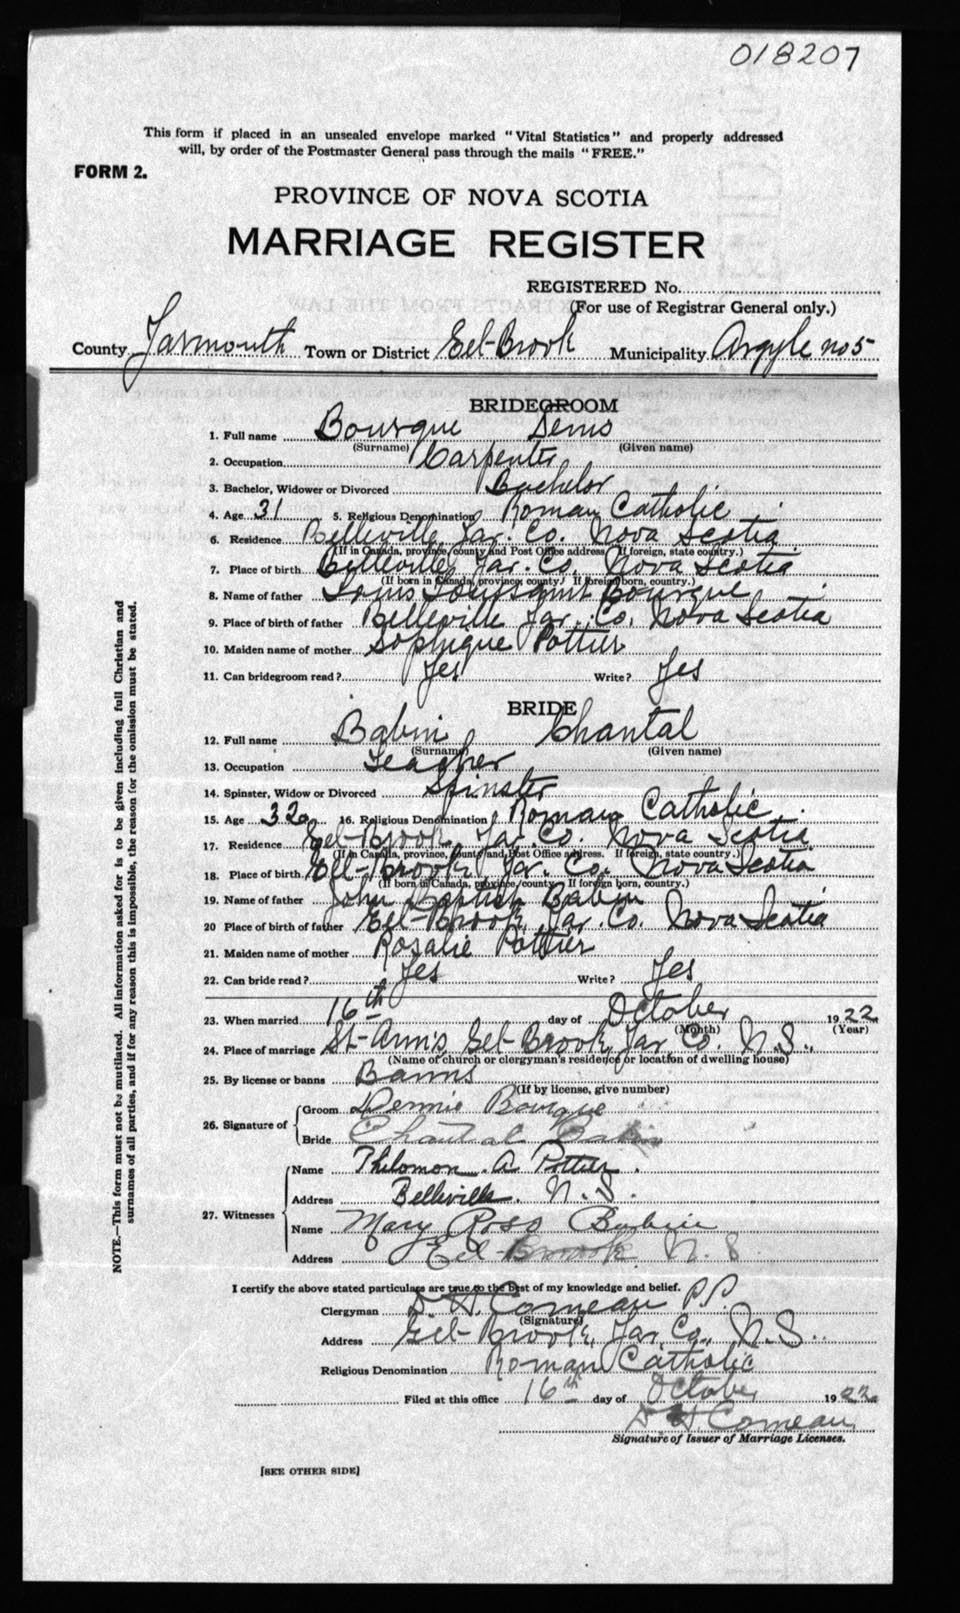 018207
This form if placed in an unsealed envelope marked "Vital Statistics" and properly addressed
will, by order of the Postmaster General pass through the mails "FREE."
FORM 2.
PROVINCE OF NOVA SCOTIA
MARRIAGE REGISTER
REGISTERED No.
(For use of Registrar General only.)
County Yarmouth Town or District Eel-Brook Municipality Argyle no 5
BRIDEGROOM
1. Full name Bourque Denis
(Surname) (Given name)
2. Occupation Carpenter
3. Bachelor, Widower or Divorced Bachelor
4. Age 31 5. Religious Denomination Roman Catholic
6. Residence Belleville Yar. Co. Nova Scotia
(If in Canada, province, county and Post Office address. If foreign, state country.)
7. Place of birth Belleville Yar. Co. Nova Scotia
(If born in Canada, province, county. If foreign born, country.)
8. Name of father Louis Toussaint Bourque
9. Place of birth of father Belleville Yar. Co. Nova Scotia
10. Maiden name of mother Sophique Pottier
11. Can bridegroom read? Yes Write? Yes
BRIDE
12. Full name Babin Chantal
(Surname) (Given name)
13. Occupation Teacher
14. Spinster, Widow or Divorced Spinster
15. Age 32 16. Religious Denomination Roman Catholic
17. Residence Eel-Brook Yar. Co. Nova Scotia
(If in Canada, province, county and Post Office address. If foreign, state country.)
18. Place of birth Eel-Brook Yar. Co. Nova Scotia
(If born in Canada, province, county. If foreign born, country.)
19. Name of father John Baptist Babin
20 Place of birth of father Eel-Brook Yar. Co. Nova Scotia
21. Maiden name of mother Rosalie Pottier
22. Can bride read? Yes Write? Yes
23. When married 16th day of October 1922
(Month) (Year)
24. Place of marriage St-Ann's Eel-Brook, Yar Co. N.S.
(Name of church or clergyman's residence or location of dwelling house)
25. By license or banns Banns
(If by license, give number)
26. Signature of Groom Dennis Bourque
Bride Chantal Babin
27. Witnesses
Name Philomon A Pottier
Address Belleville. N.S.
Name Mary Rose
Address Eel-Brook N.S
I certify the above stated particulars are true to the best of my knowledge and belief.
Clergyman D. H. Comeau P.P.
(Signature)
Address Eel-Brook, Yar. Co., N.S.
Religious Denomination Roman Catholic
Filed at this office 16th day of October 1922
D H. Comeau
Signature of Issuer of Marriage Licenses.
[SEE OTHER SIDE]
NOTE.—This form must not be mutilated. All information asked for is to be given including full Christian and
surnames of all parties, and if for any reason this is impossible, the reason for the omission must be stated.